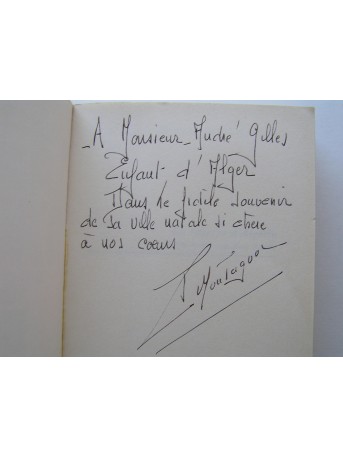 _A Monsieur André Gilles
Enfant d'Alger
Dans le fidèle souvenir
de sa ville natale si chère
à nos coeurs
Montagnon